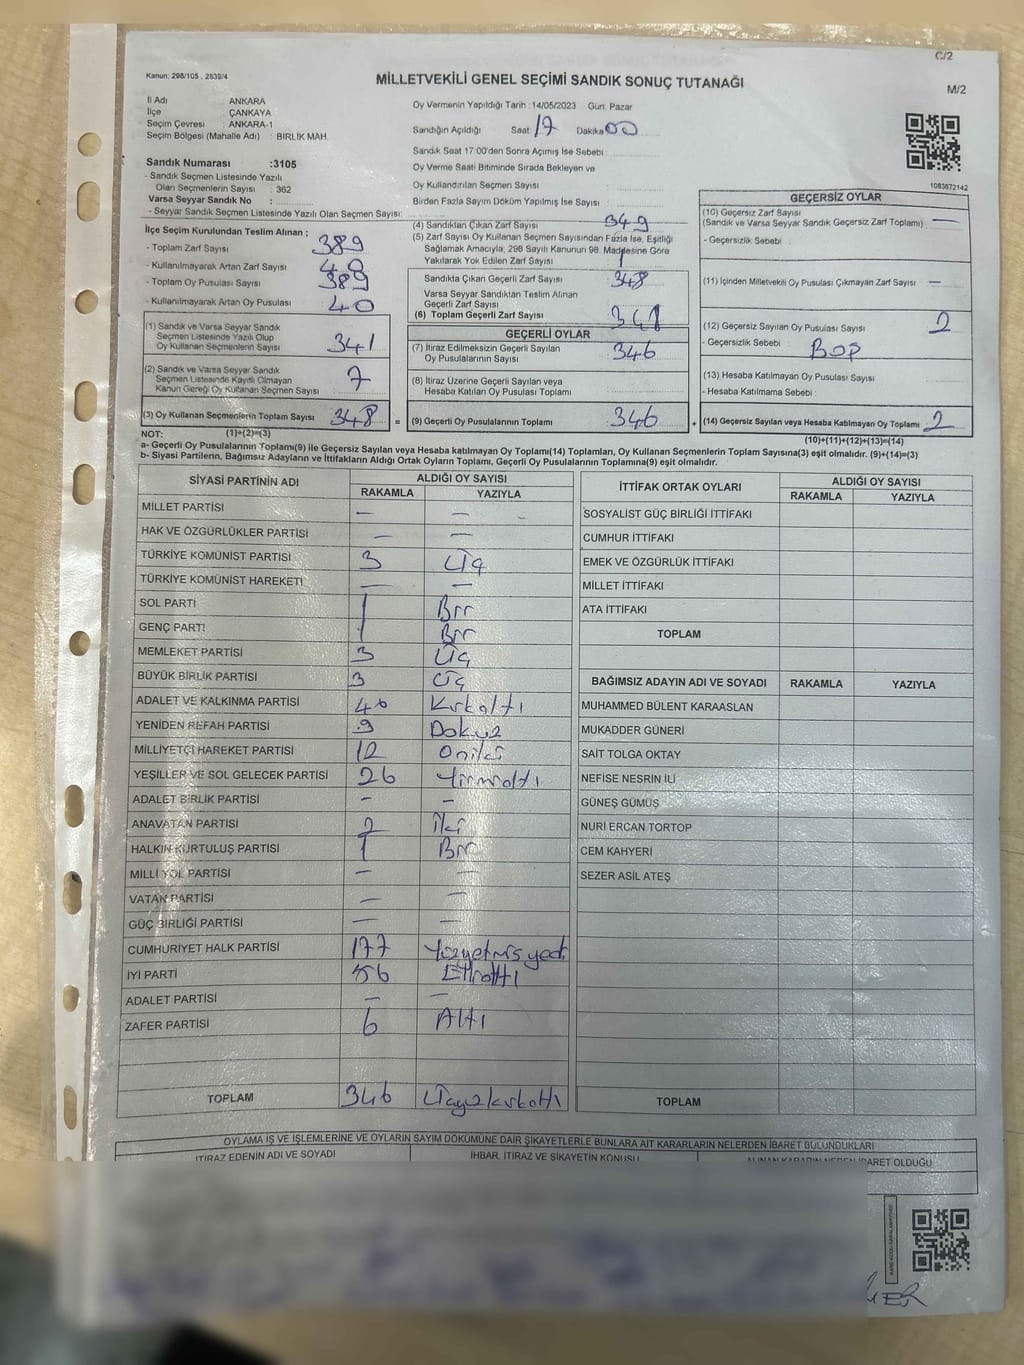 C/2
Kanun: 298/105 , 2839/4
MİLLETVEKİLİ GENEL SEÇİMİ SANDIK SONUÇ TUTANAĞI
M/2
İl Adı ANKARA
İlçe ÇANKAYA
Seçim Çevresi : ANKARA-1
Seçim Bölgesi (Mahalle Adı) : BIRLIK MAH.
Oy Vermenin Yapıldığı Tarih : 14/05/2023 Gün: Pazar
Sandığın Açıldığı Saat 17 Dakika 00
Sandık Saat 17:00'den Sonra Açımış İse Sebebi :
Oy Verme Saati Bitiminde Sırada Bekleyen ve
Oy Kullandırılan Seçmen Sayısı
Birden Fazla Sayım Döküm Yapılmış İse Sayısı :
1083672142
Sandık Numarası :3105
- Sandık Seçmen Listesinde Yazılı
Olan Seçmenlerin Sayısı : 362
Varsa Seyyar Sandık No :
- Seyyar Sandık Seçmen Listesinde Yazılı Olan Seçmen Sayısı:
İlçe Seçim Kurulundan Teslim Alınan ;
- Toplam Zarf Sayısı 389
- Kullanılmayarak Artan Zarf Sayısı
- Toplam Oy Pusulası Sayısı : 389
- Kullanılmayarak Artan Oy Pusulası : 40
(1) Sandık ve Varsa Seyyar Sandık
Seçmen Listesinde Yazılı Olup
Oy Kullanan Seçmenlerin Sayısı : 341
(2) Sandık ve Varsa Seyyar Sandık
Seçmen Listesinde Kayıtlı Olmayan
Kanun Gereği Oy Kullanan Seçmen Sayısı : 7
(3) Oy Kullanan Seçmenlerin Toplam Sayısı : 348 =
(1)+(2)=(3)
(4) Sandıktan Çıkan Zarf Sayısı : 349
(5) Zarf Sayısı Oy Kullanan Seçmen Sayısından Fazla İse, Eşitliği
Sağlamak Amacıyla, 298 Sayılı Kanunun 98. Maddesine Göre
Yakılarak Yok Edilen Zarf Sayısı : 1
Sandıkta Çıkan Geçerli Zarf Sayısı : 348
Varsa Seyyar Sandıktan Teslim Alınan
Geçerli Zarf Sayısı
(6) Toplam Geçerli Zarf Sayısı
GEÇERLİ OYLAR
(7) İtiraz Edilmeksizin Geçerli Sayılan
Oy Pusulalarının Sayısı : 346
(8) İtiraz Üzerine Geçerli Sayılan veya
Hesaba Katılan Oy Pusulası Toplamı
(9) Geçerli Oy Pusulalarının Toplamı : 346 +
GEÇERSİZ OYLAR
(10) Geçersiz Zarf Sayısı
(Sandık ve Varsa Seyyar Sandık Geçersiz Zarf Toplamı) : —
- Geçersizlik Sebebi :
(11) İçinden Milletvekili Oy Pusulası Çıkmayan Zarf Sayısı : —
(12) Geçersiz Sayılan Oy Pusulası Sayısı : 2
- Geçersizlik Sebebi : BOŞ
(13) Hesaba Katılmayan Oy Pusulası Sayısı :
- Hesaba Katılmama Sebebi :
(14) Geçersiz Sayılan veya Hesaba Katılmayan Oy Toplamı : 2
(10)+(11)+(12)+(13)=(14)
NOT:
a- Geçerli Oy Pusulalarının Toplamı(9) ile Geçersiz Sayılan veya Hesaba katılmayan Oy Toplamı(14) Toplamları, Oy Kullanan Seçmenlerin Toplam Sayısına(3) eşit olmalıdır. (9)+(14)=(3)
b- Siyasi Partilerin, Bağımsız Adayların ve İttifakların Aldığı Ortak Oyların Toplamı, Geçerli Oy Pusulalarının Toplamına(9) eşit olmalıdır.
SİYASİ PARTİNİN ADI ALDIĞI OY SAYISI
RAKAMLA YAZIYLA
MİLLET PARTİSİ — —
HAK VE ÖZGÜRLÜKLER PARTİSİ — —
TÜRKİYE KOMÜNİST PARTİSİ 3 Üç
TÜRKİYE KOMÜNİST HAREKETİ — —
SOL PARTİ 1 Bir
GENÇ PARTİ 1 Bir
MEMLEKET PARTİSİ 3 Üç
BÜYÜK BİRLİK PARTİSİ 3 Üç
ADALET VE KALKINMA PARTİSİ 46 Kırkaltı
YENİDEN REFAH PARTİSİ 9 Dokuz
MİLLİYETÇİ HAREKET PARTİSİ 12 Oniki
YEŞİLLER VE SOL GELECEK PARTİSİ 26 Yirmialtı
ADALET BİRLİK PARTİSİ — —
ANAVATAN PARTİSİ 2 İki
HALKIN KURTULUŞ PARTİSİ 1 Bir
MİLLİ YOL PARTİSİ — —
VATAN PARTİSİ — —
GÜÇ BİRLİĞİ PARTİSİ — —
CUMHURİYET HALK PARTİSİ 177 Yüzyetmişyedi
İYİ PARTİ 56 Ellialtı
ADALET PARTİSİ — —
ZAFER PARTİSİ 6 Altı
TOPLAM 346 Üçyüzkırkaltı
İTTİFAK ORTAK OYLARI ALDIĞI OY SAYISI
RAKAMLA YAZIYLA
SOSYALİST GÜÇ BİRLİĞİ İTTİFAKI
CUMHUR İTTİFAKI
EMEK VE ÖZGÜRLÜK İTTİFAKI
MİLLET İTTİFAKI
ATA İTTİFAKI
TOPLAM
BAĞIMSIZ ADAYIN ADI VE SOYADI RAKAMLA YAZIYLA
MUHAMMED BÜLENT KARAASLAN
MUKADDER GÜNERİ
SAİT TOLGA OKTAY
NEFİSE NESRİN İLİ
GÜNEŞ GÜMÜŞ
NURİ ERCAN TORTOP
CEM KAHYERİ
SEZER ASİL ATEŞ
TOPLAM
OYLAMA İŞ VE İŞLEMLERİNE VE OYLARIN SAYIM DÖKÜMÜNE DAİR ŞİKAYETLERLE BUNLARA AİT KARARLARIN NELERDEN İBARET BULUNDUKLARI
İTİRAZ EDENİN ADI VE SOYADI İHBAR, İTİRAZ VE ŞİKAYETİN KONUSU ALINAN KARARIN NEDEN İBARET OLDUĞU